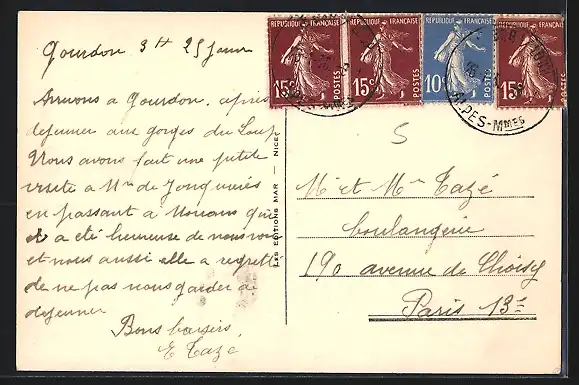 Gourdon 3 H 25 
Arrivons a Gourdon, après
dejeuner aux gorges du Loup
Nous avons fait une petite
visite a Mme de Jonquières
en passant a Mouans qui
a été heureuse de nous voir
et nous aussi elle a regretté
de ne pas nous garder a
dejeuner
Bons baisers
E Tazé
LES EDITIONS MAR — NICE
REPUBLIQUE FRANÇAISE
15c POSTES
REPUBLIQUE FRANÇAISE
15c POSTES
REPUBLIQUE FRANÇAISE
10c
REPUBLIQUE FRANÇAISE
15c POSTES
ALPES-MMES
ALPES-MMES
5
Mr et Mme Tazé
boulangerie
190 avenue de Choisy
Paris 13e